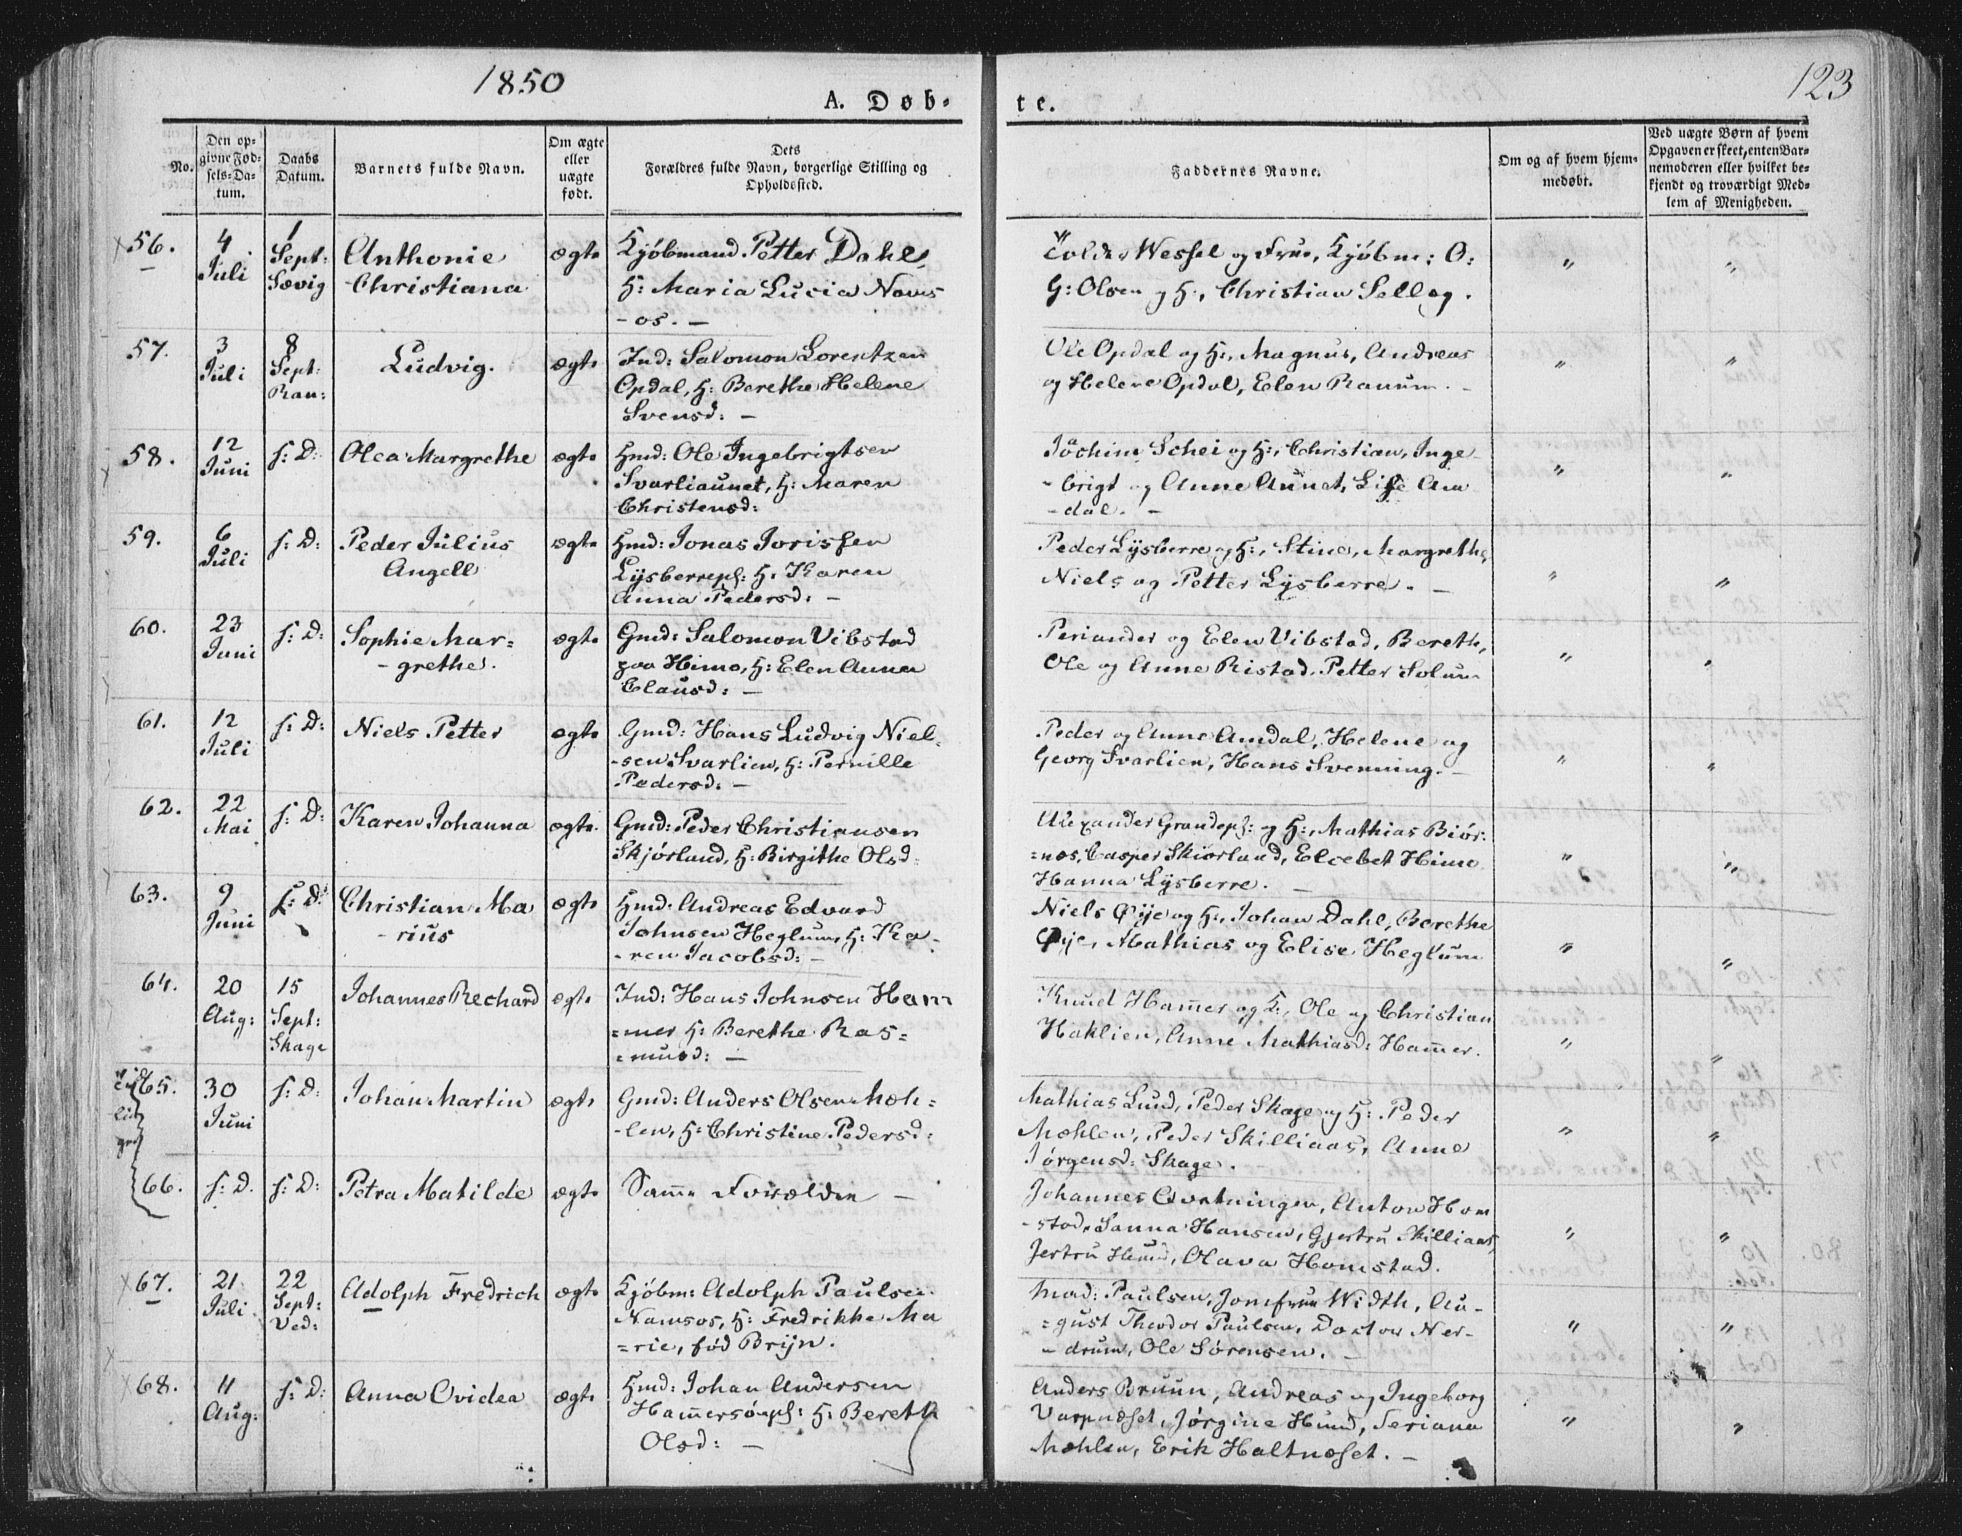 1850
A. Døb-
te.
123
No.
Den op-
givne Fød-
sels-Da-
tum.
Daabs
Datum.
Barnets fulde Navn.
Om ægte
eller
uægte
født.
Dets
Forældres fulde Navn, borgerlige Stilling og
Opholdssted.
Faddernes Navne.
Om og af hvem hjem-
medøbt.
Ved uægte Børn af hvem
Opgaven er skeet, enten Bar-
nemoderen eller hvilket be-
kjendt og troværdigt Med-
lem af Menigheden.
56.
4
Juli
1
Sept:
Sævig
Anthonie
Christiana
ægte
Kjøbmand Petter Dahl,
H: Maria Lucia Nams
-os. -
Wessel og Frue, Kjøbm: O:
G: Olsen og H:, Christian Selleg.
"
"
57.
3
Juli
8
Sept:
Ran:
Ludvig.
ægte
Ind: Salomon Lorentzen
Opdal, H: Berethe Helene
Svensd: -
Ole Opdal og H:, Magnus, Andreas
og Helene Opdal, Elen Ranum. -
"
"
58.
12
Juni
s: D:
Olea Margrethe
ægte
Hmd: Ole Ingebrigtsen
Svarliaunet, H: Maren
Christensd:
Jochim Schei og H:, Christian, Inge
-brigt og Anne Aunet, Lise Am
-dal. -
"
"
59.
6
Juli
s: D:
Peder Julius
Angell
ægte
Hmd: Jonas Jorissen
Lysberrepl: H: Karen
Anna Pedersd: -
Peder Lysberre og H:, Stine, Margrethe,
Niels og Petter Lysberre. -
"
"
60.
23
Juni
s: D:
Sophie Mar-
-grethe.
ægte
Gmd: Salomon Vibstad
paa Himo, H: Elen Anna
Clausd: -
Periander og Elen Vibstad, Bereth,
Ole og Anne Ristad, Petter Solum
"
"
61.
12
Juli
s: D:
Niels Petter
ægte
Gmd: Hans Ludvig Niel-
-sen Svarlien, H: Pernille
Pedersd: -
Peder og Anne Amdal, Helene og
Georg Svarlien, Hans Svenning. -
"
"
62.
22
Mai
s: D:
Karen Johanna
ægte
Gmd: Peder Christiansen
Skjørland, H: Birgithe Olsd:
Alexander Grandepl: og H:, Mathias Biør-
=nes, Casper Skiørland, Elcebet Himo
Hanna Lysberre. -
"
"
63.
9
Juni
s: D:
Christian Ma
-rius
ægte
Hmd: Andreas Edvard
Johnsen Heglum, H: Ka-
-ren Jacobsd: -
Niels Øye og H:, Johan Dahl, Berethe
Øye, Mathias og Elise Heglum
"
"
64.
20
Aug:
15
Sept:
Skage
Johannes Rechard
ægte
Ind: Hans Johnsen Ham
=mer H: Berethe Ras=
=musd: -
Knud Hammer og H:, Ole og Christian
Haklien, Anne Mathiasd: Hammer.
"
"
65.
30
Juni
s: D:
Johan Martin
ægte
Gmd: Anders Olsen Mæh=
-len, H: Christine Pedersd:
Mathias Lund, Peder Skage og H: Peder
Mæhlen, Peder Skilliaas, Anne
Jørgensd: Skage.
"
"
66.
s: D.
s: D:
Petra Matilde
ægte
Samme Forældre -
Johannes Overtningen, Anton Hom
-stad, Sanna Hansen, Gjertru Skilliaas,
Jertru Hund, Olava Homstad.
"
"
67.
21
Juli
22
Sept:
Ved:
Adolph Fredrich
ægte
Kjøbm: Adolph Paulsen
Namsos, H: Fredrikke Ma
=rie, fød Brijn.
Mad: Paulsen, Jomfrue Width, Au-
=gust Theodor Paulsen, Doctor Ner-
-drum, Ole Sørensen. -
"
"
68.
11
Aug:
s: D:
Anna Ovidea
ægte
Hmd: Johan Andersen
Hammersøepl: H: Bereth
Olsd: -
Anders Bruun, Andreas og Ingeborg
Varpnæset, Jørgine Hund, Seriana
Mæhlen, Erik Haltnæset. -
"
"